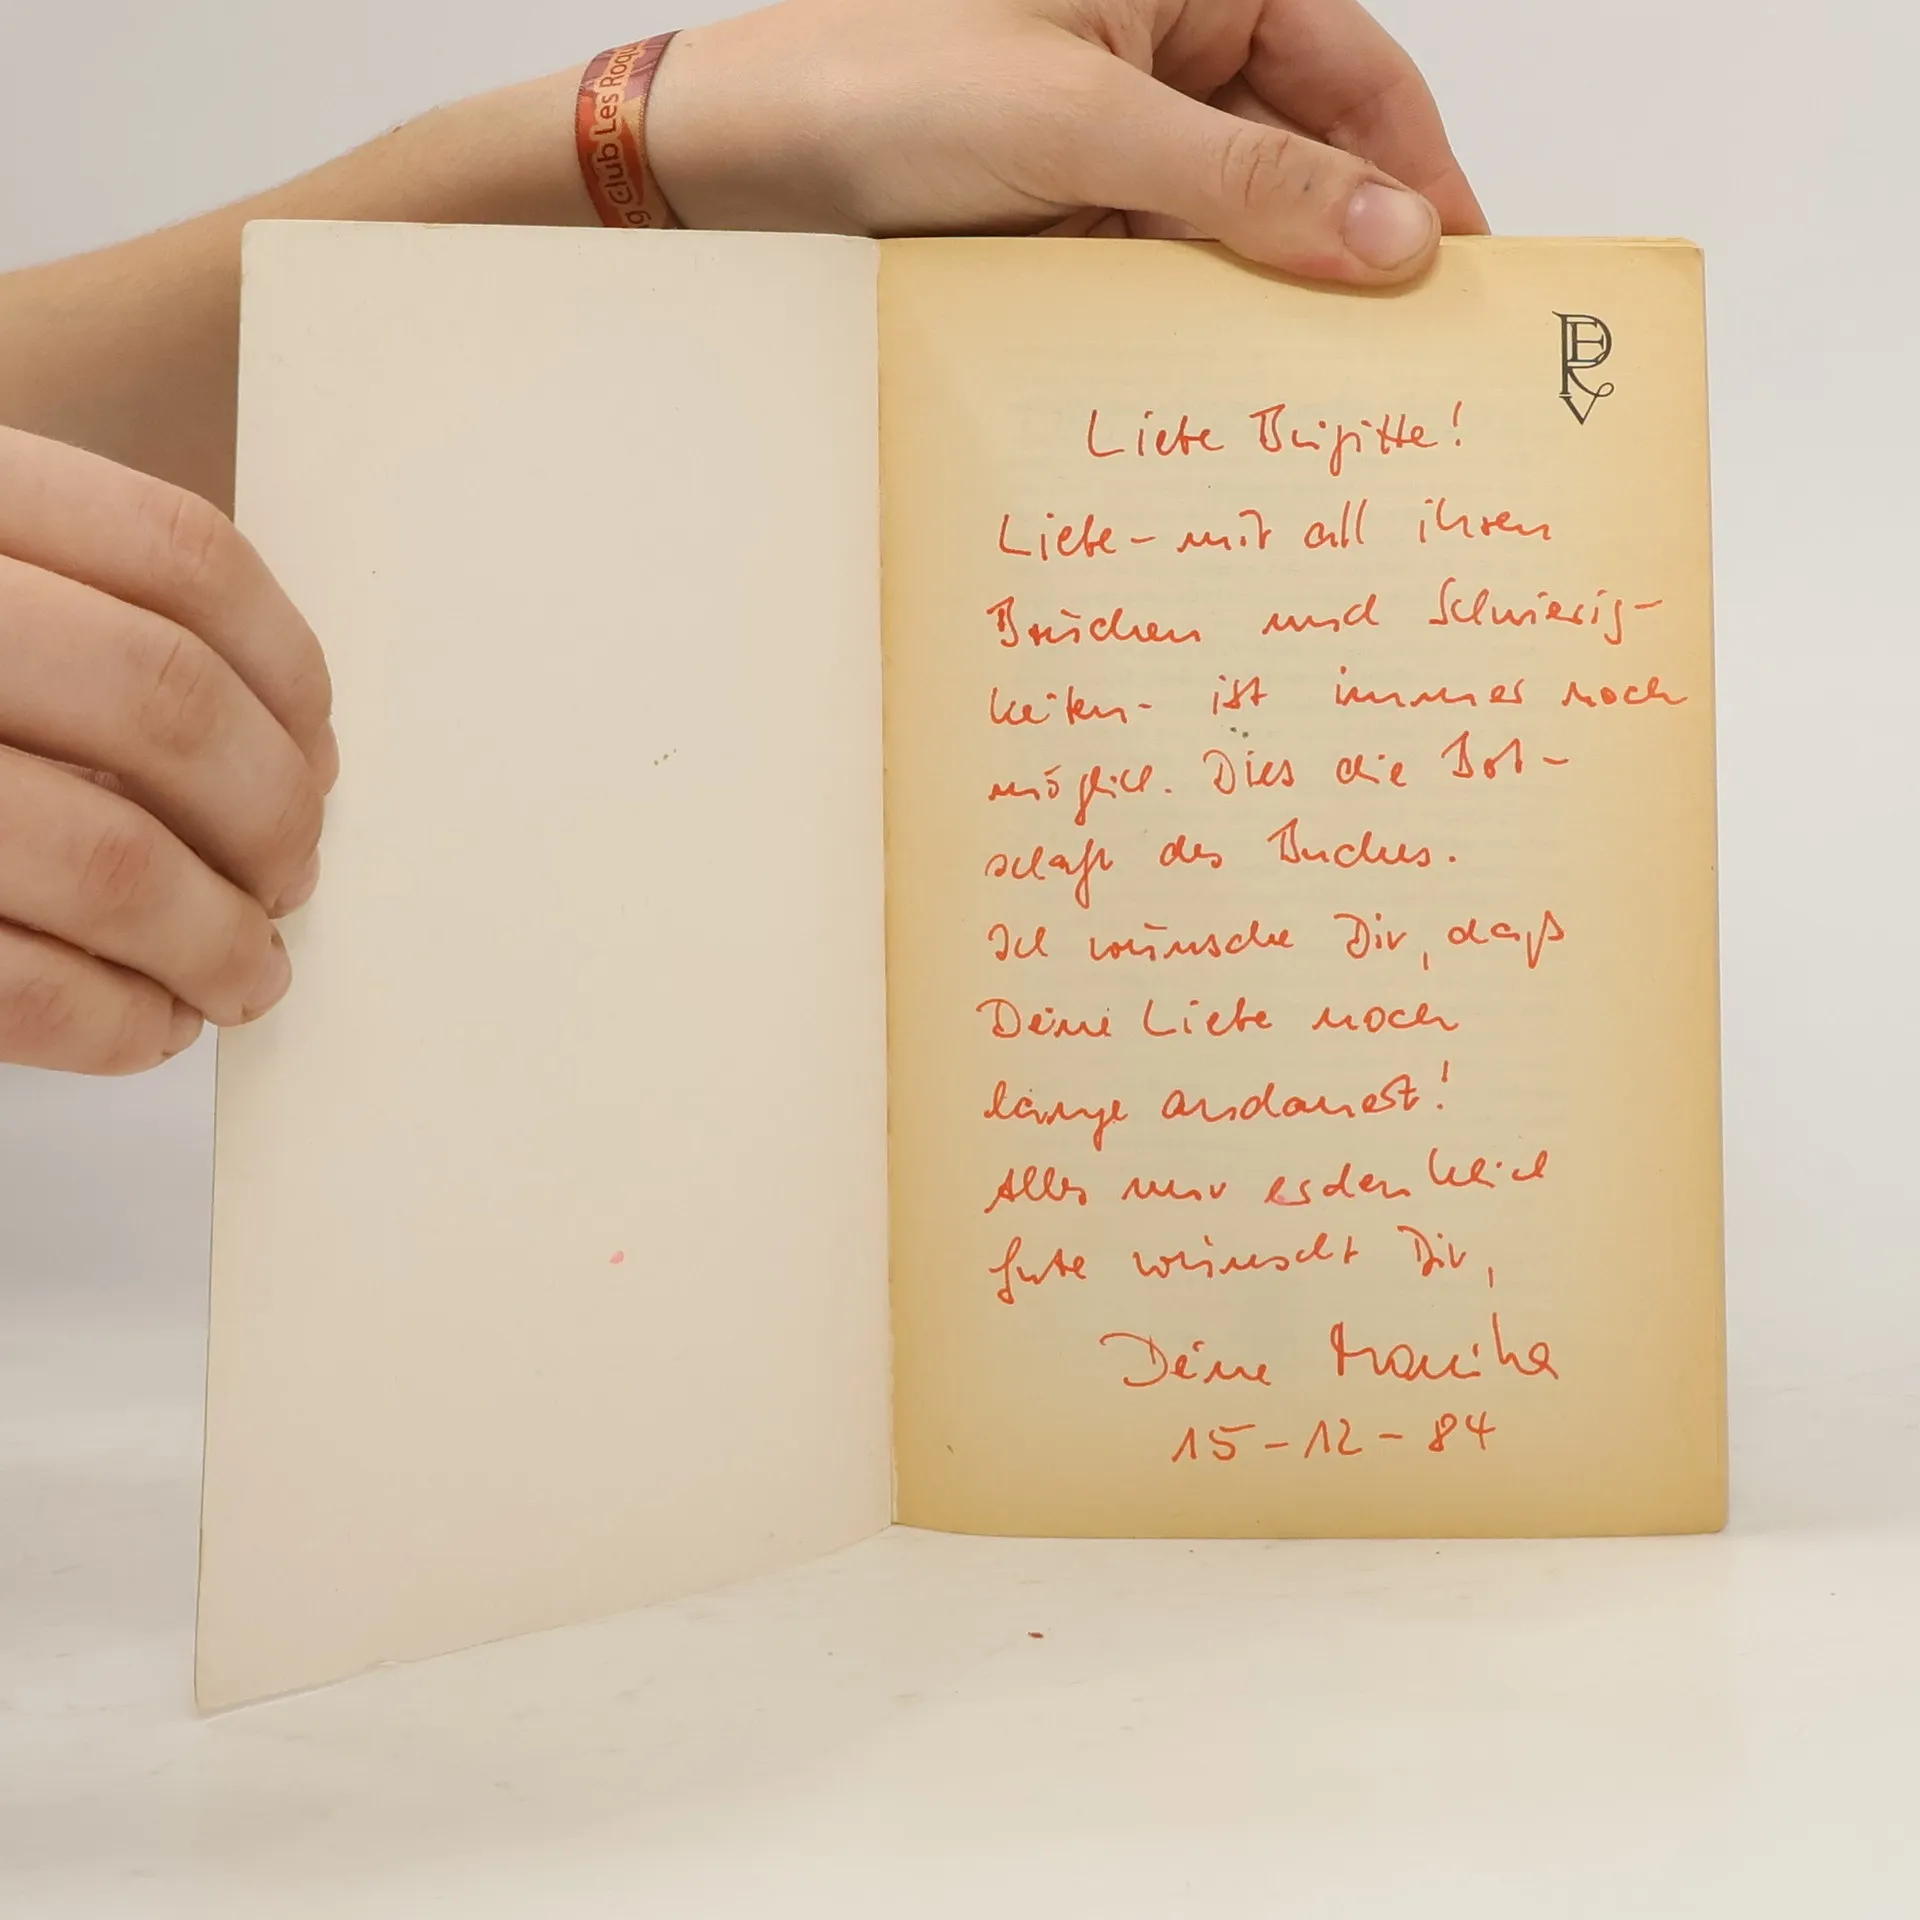 g Club Les Roqu
PEV
Liebe Brigitte!
Liebe - mit all ihren
Brüchen und Schwierig-
keiten - ist immer noch
möglich. Dies die Bot-
schaft des Buches.
Ich wünsche Dir, daß
Deine Liebe noch
lange andauert!
Alles nur erdenklich
Gute wünscht Dir,
Deine Monika
15-12-84